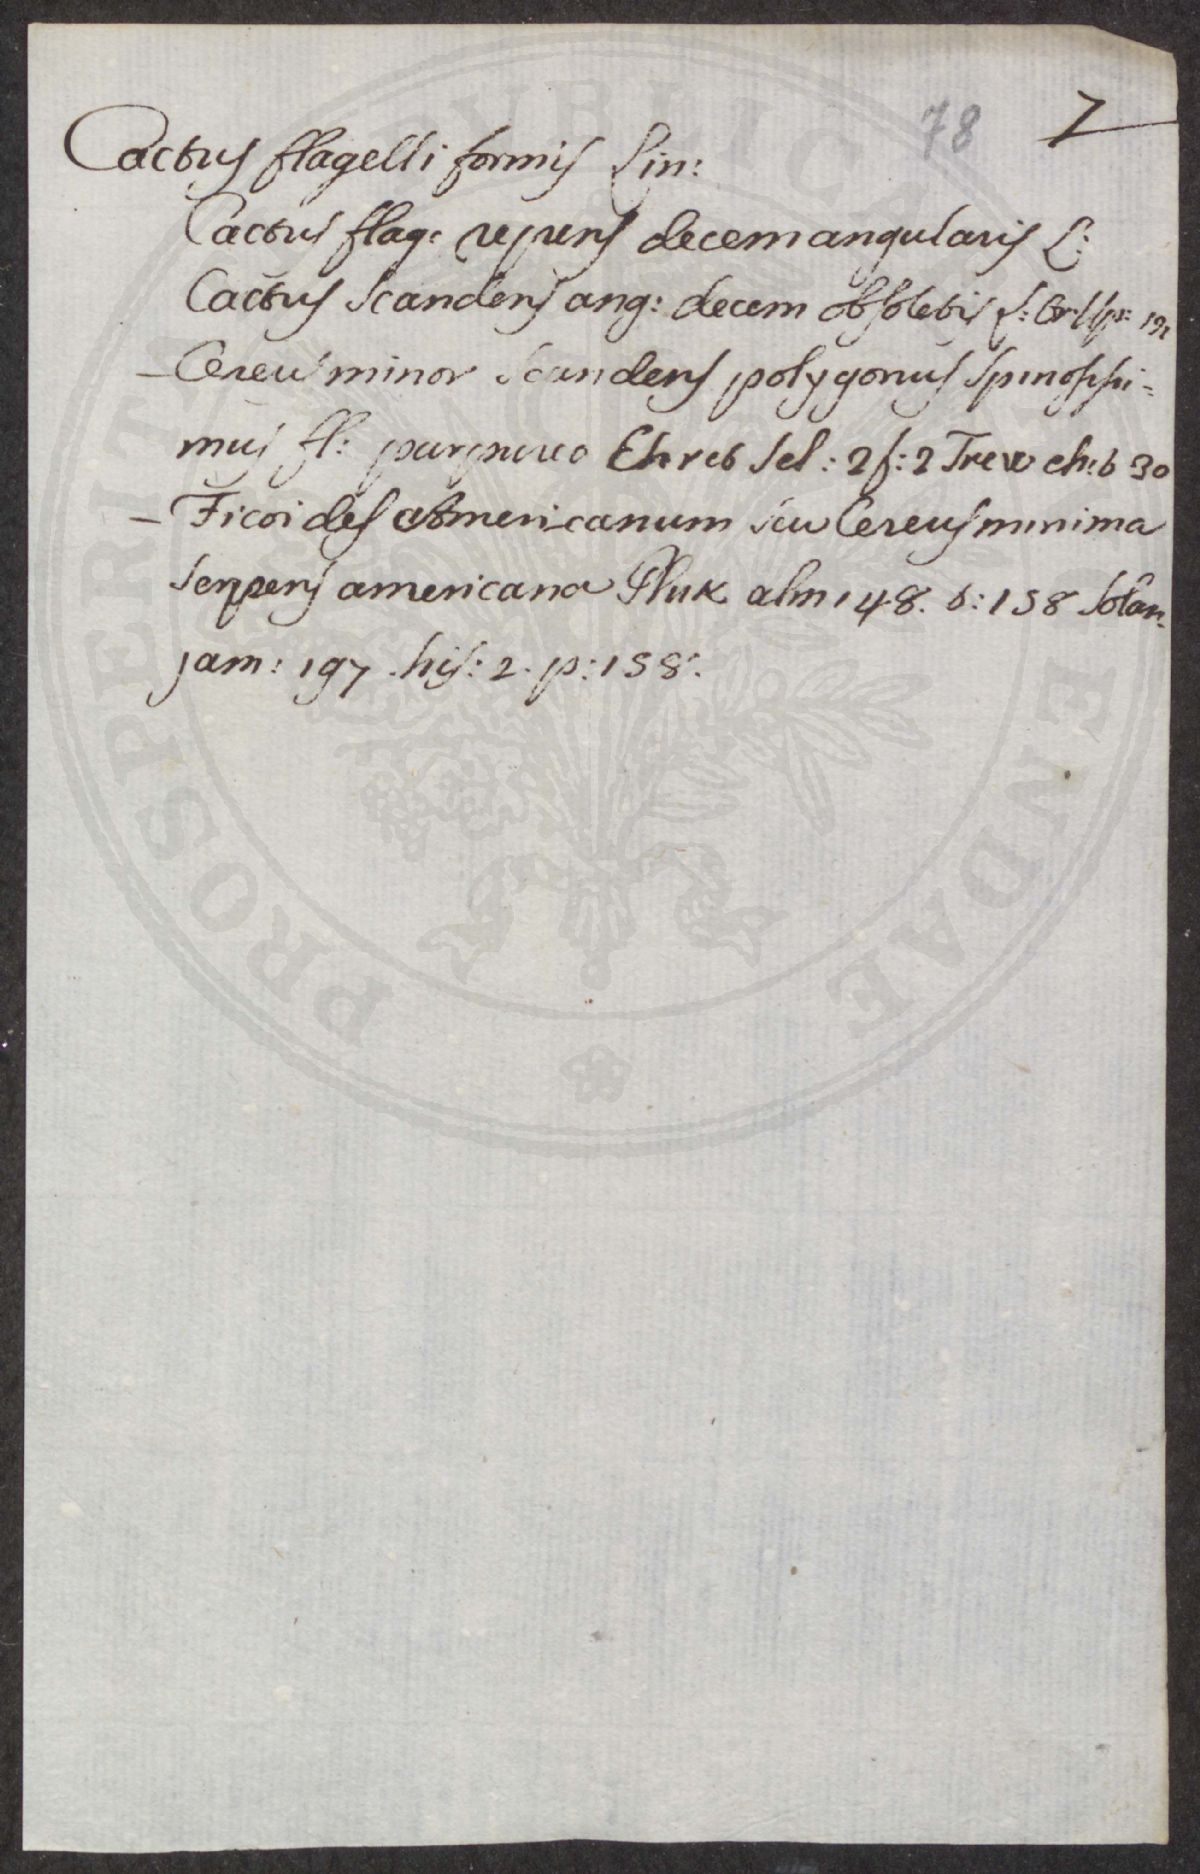 78 7
Cactus flagelli formis Lin:
Cactus flag: repens decemangularis L:
Cactus scandens ang: decem obsoletis L: Ups: 121
– Cereus minor scandens polygonus spinossi-
mus fl: purpureo Ehret sel: 2 f: 2 Trew eh: t 30
– Ficoides americanum seu Cereus minima
serpens americana Pluk alm 148. t: 158 Sloan.
jam: 197. his: 2. p: 158.
PROSPERITATI PUBLICAE AUGENDAE